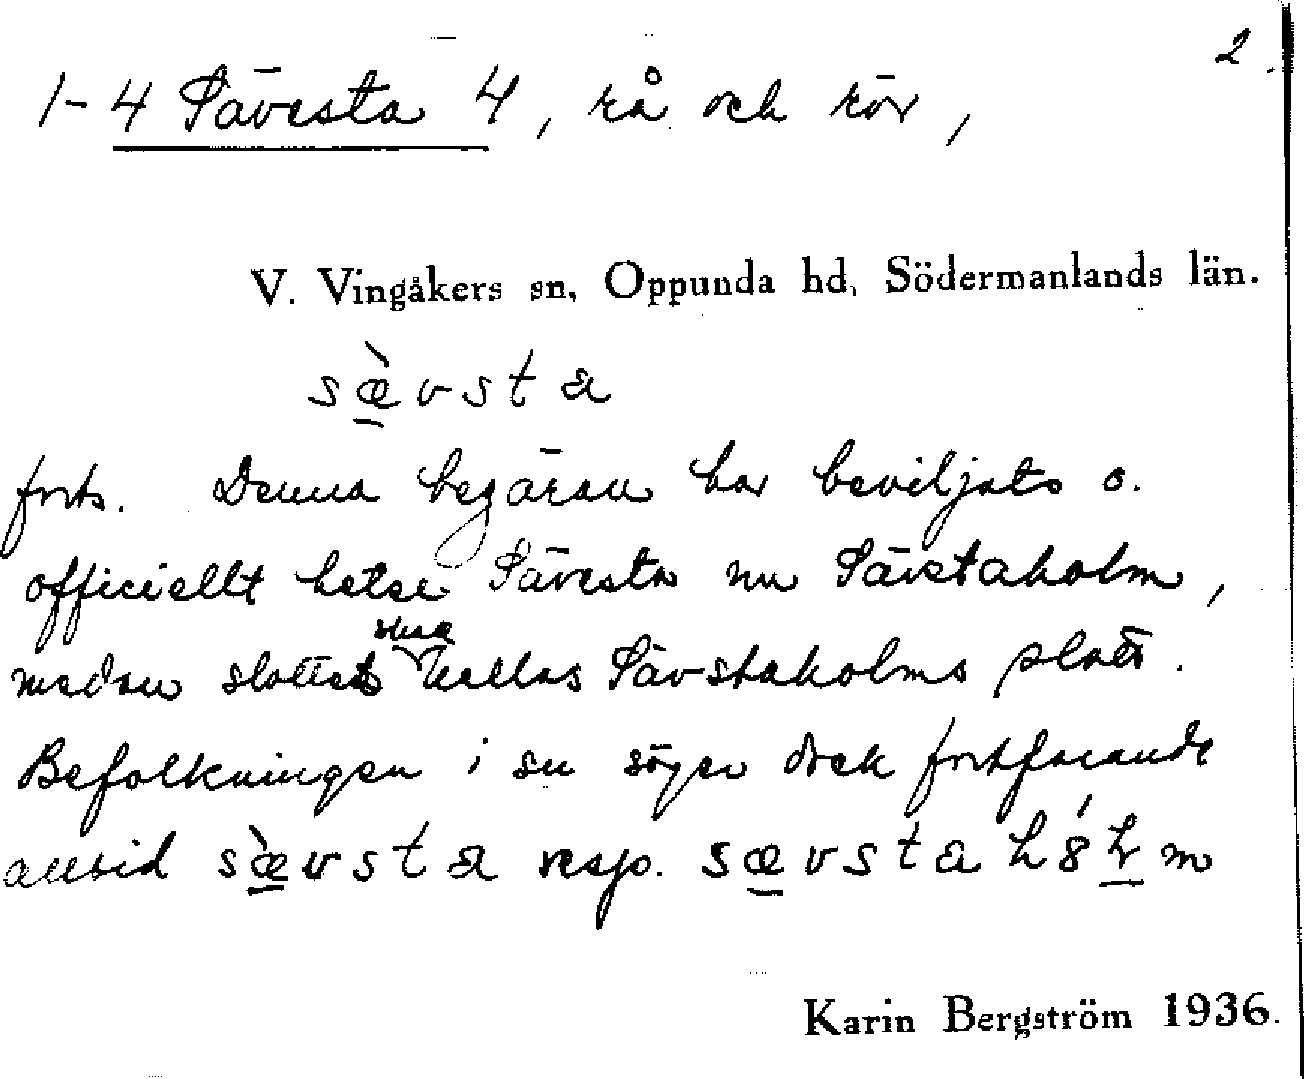 2
1-4 Sävesta 4, rå och rör,
V. Vingåkers sn, Oppunda hd, Södermanlands län.
sæ̀vsta
forts. Denna begäran har beviljats o.
officiellt heter Sävesta nu Sävstaholm,
medan slottet skall kallas Sävstaholms slott.
Befolkningen i sn säger dock fortfarande
alltid sæ̀vsta resp. sævstah
Karin Bergström 1936.